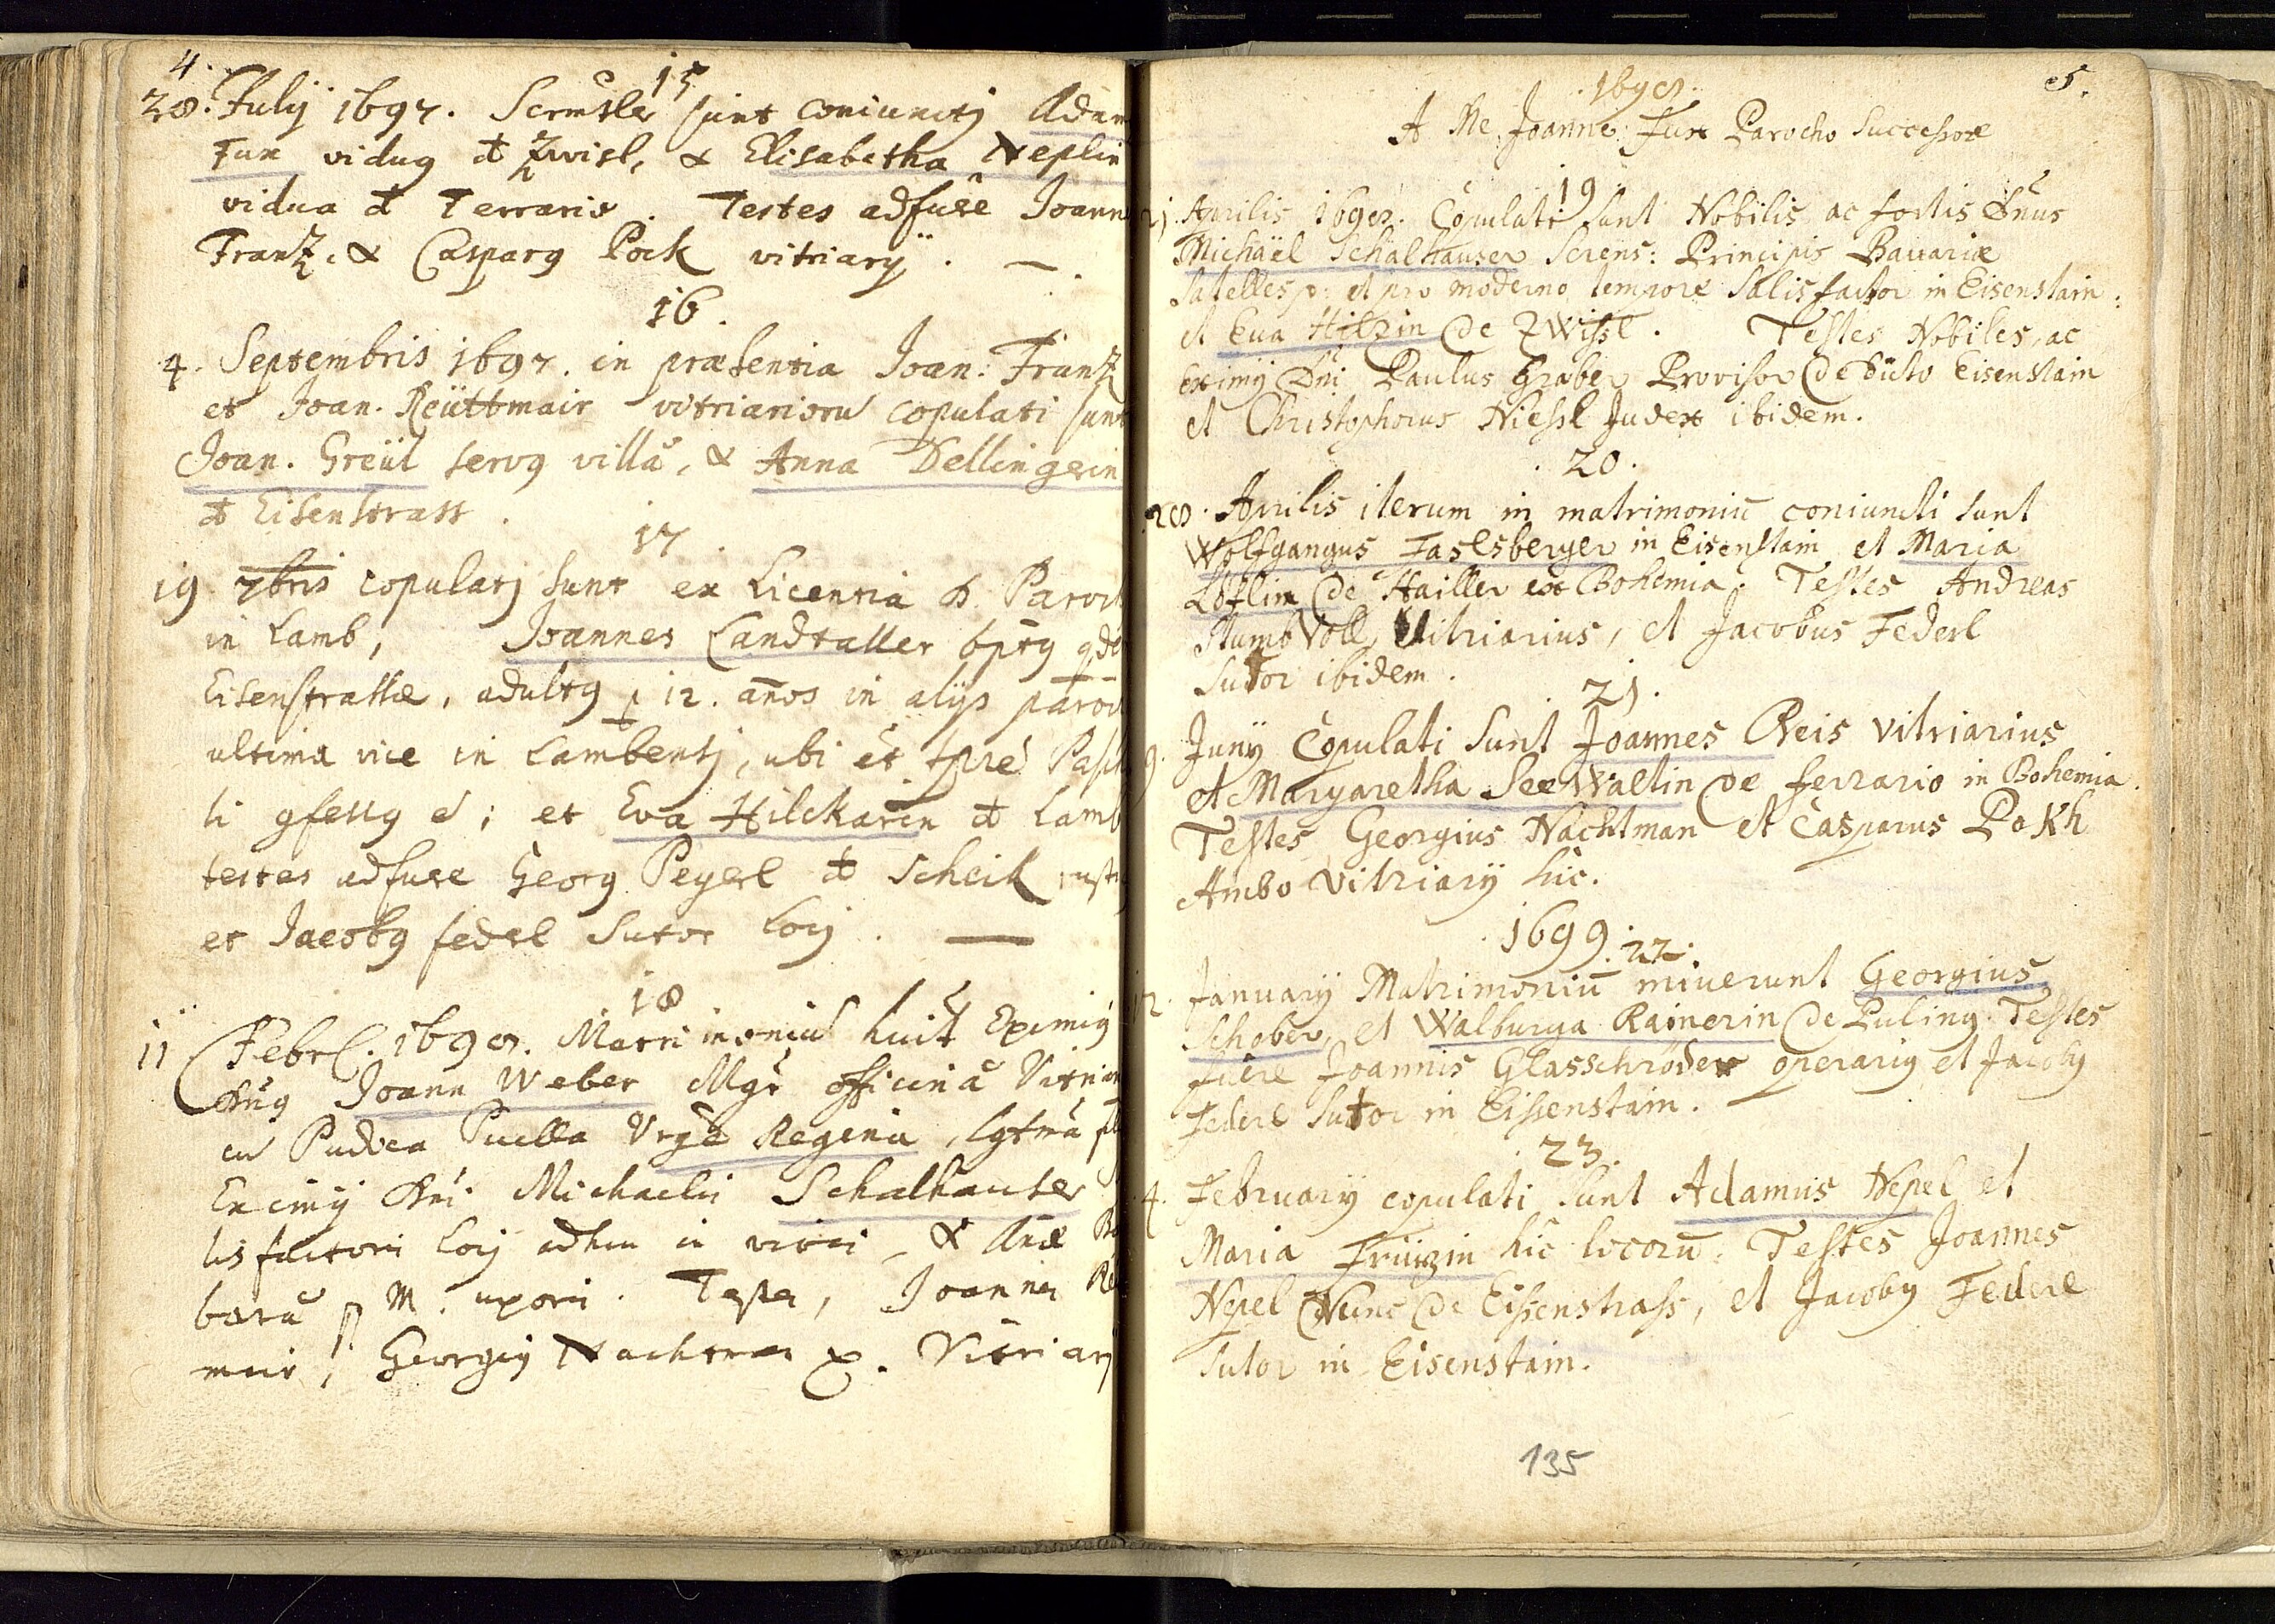 4.
15
28. July 1697. sunt coniunctj Adam
Fux vidug Zwisl, & Elisabetha Neplin
vidua Ferrario. Testes adfuere Joann
Frantz. & Casparg Pock vitriarÿ. —.
16.
4. Septembris 1697. in præsentia Joan: Frantz
et Joan. Reüttmair vitriariorū copulati sunt
Joan. Greül servg villā, & Anna Dellingerin
Eisenstrass.
17.
19 7bris copulatj sunt ex Licentia D. Paroch
in Lamb, Joannes Landtaller bptg
Eisenstrassæ, adultg 12. años in alÿs paroch
ultima vice in Lambentj, ubi et tpre Pasch
li gfessg e; et Eva Hilckarin Lamb
testes adfuere Georg Peyerl Scheik rust
et Jacobg federl Sutor locj. —
18.
11 Febr. 1698. Matrimoniū Eximiÿ
Dñg Joann Weber Mgr officinā Vitriar
cū Pudica Puella Vrgē Regina, lgtmā fil
Eximÿ Dñi Michaelis Schalhauser
lis factoris locj adhuc in vivis, & Anæ Ba
barā p. M. uxoris. Testes, Joannes Re
mair, Georgig Nachtman x. Vitriarj
5.
1698.
A Me Joanne: Fux Parocho Successore
19
21. Aprilis 1698. Copulati sunt Nobilis ac fortis Dñus
Michaël Schalhauser Serens: Principis Bauariæ
Satelles p: et pro moderno tempore Salis factor in Eisenstain:
et Eua Hilzin de Zwissl. Testes Nobiles, ac
Eximÿ Dñi Paulus Graber Provisor de Dicto Eisenstain
et Christophorus Niessl Judex ibidem.
20.
28. Aprilis iterum in matrimoniū coniuncti sunt
Wolfgangus Faslsberger in Eisenstain et Maria
Löflin de Hailler ex Bohemia. Testes Andreas
Stumb Voll, Vitriarius, et Jacobus Federl
Sutor ibidem.
21.
9. Junÿ Copulati sunt Joannes Reis Vitriarius
et Margaretha SeeWaltin de ferrario in Bohemia.
Testes Georgius Nachtman et Casparus Pokh
Ambo Vitriarÿ hic.
1699.
22.
12. Januarÿ Matrimoniū iniuerunt Georgius
Schober, et Walburga Rainerin de Puling. Testes
fuere Joannis Glasschröder operarig et Jacobg
Federl Sutor in Eissenstain.
23.
4. Februarÿ copulati sunt Adamus Nepel et
Maria Früzin hic locorū. Testes Joannes
Nepel Nunc de Eissenstrass, et Jacobg Federl
Sutor in Eisenstain.
135